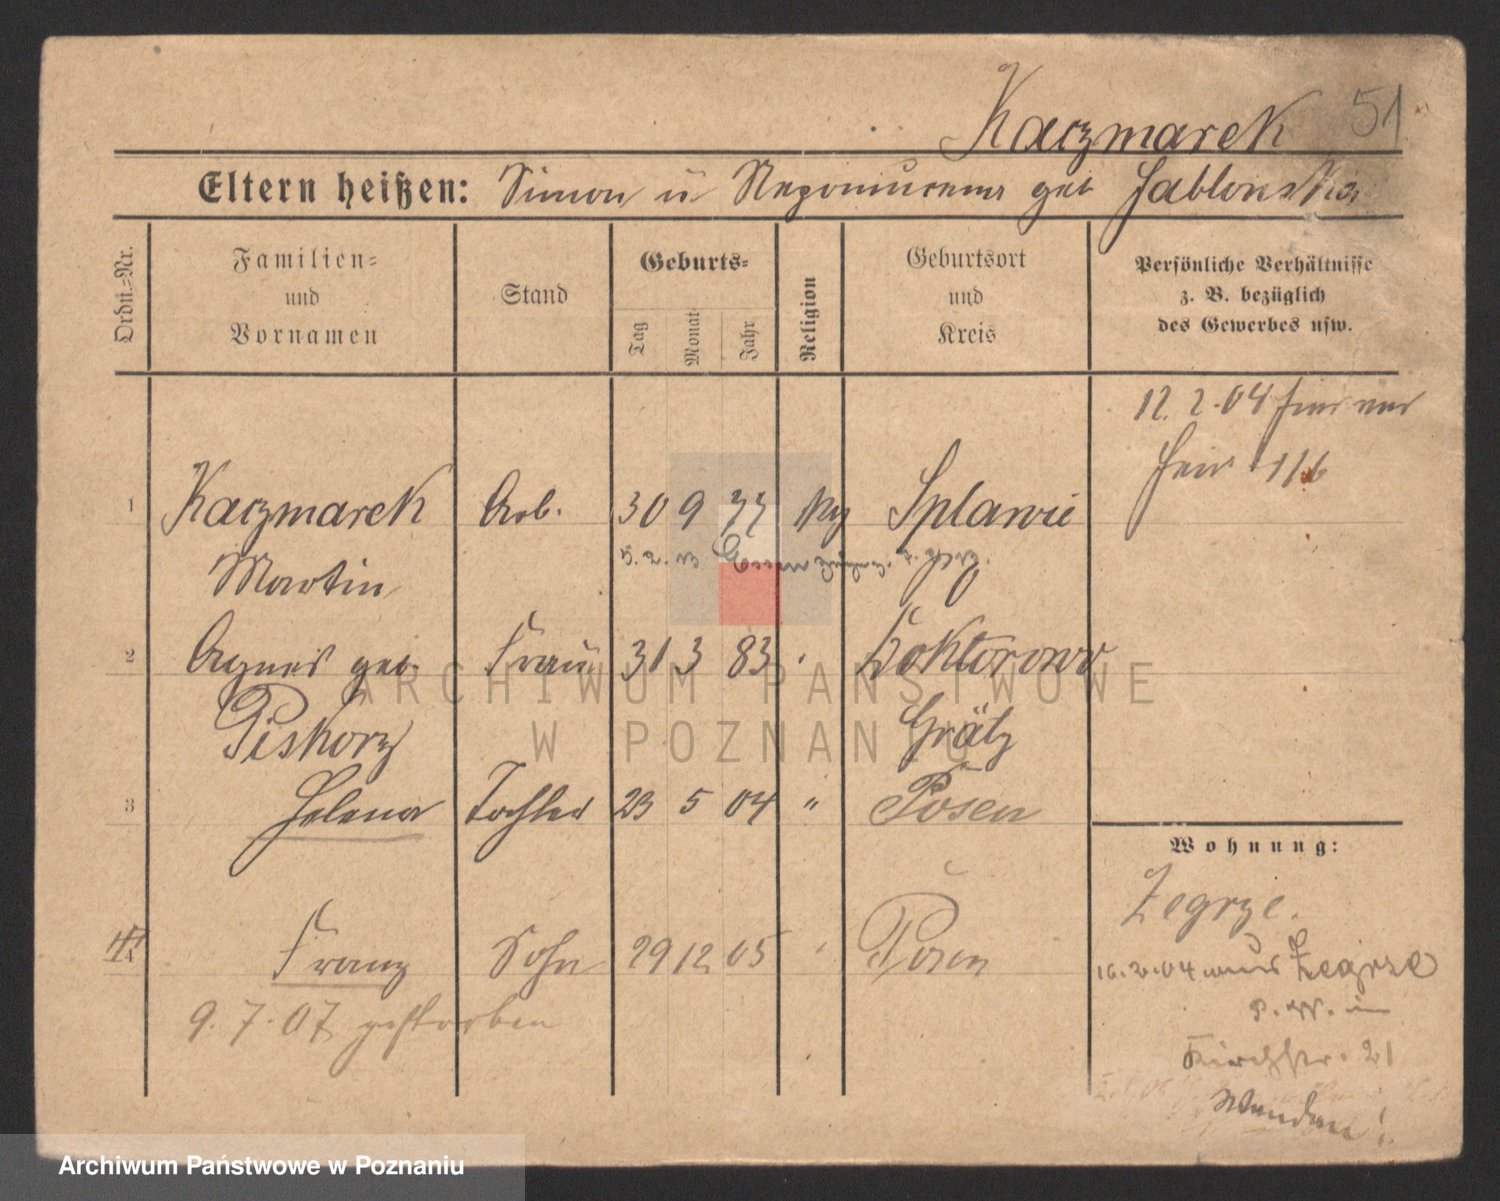 Kaczmarek 51
Eltern heißen: Simon u Nepomucena geb Jablonska
Ordn.=Nr.
Familien=
und
Vornamen
Stand
Geburts=
Tag
Monat
Jahr
Religion
Geburtsort
und
Kreis
Persönliche Verhältnisse
z. B. bezüglich
des Gewerbes usw.
12. 2. 04
1 Kaczmarek Arb. 30 9 77 Splawie
Martin
2 Agnes geb. Frau 31 3 83 Doktorowo
Piskorz Grätz
3 Helena Tochter 23 5 04 " Posen
Wohnung:
Zegrze.
4 Franz Sohn 29 12 05 Posen
16. 2. 04 aus Zegrze
9. 7. 07 gestorben
Kirchstr. 21
ARCHIWUM PAŃSTWOWE
W POZNANIU
Archiwum Państwowe w Poznaniu